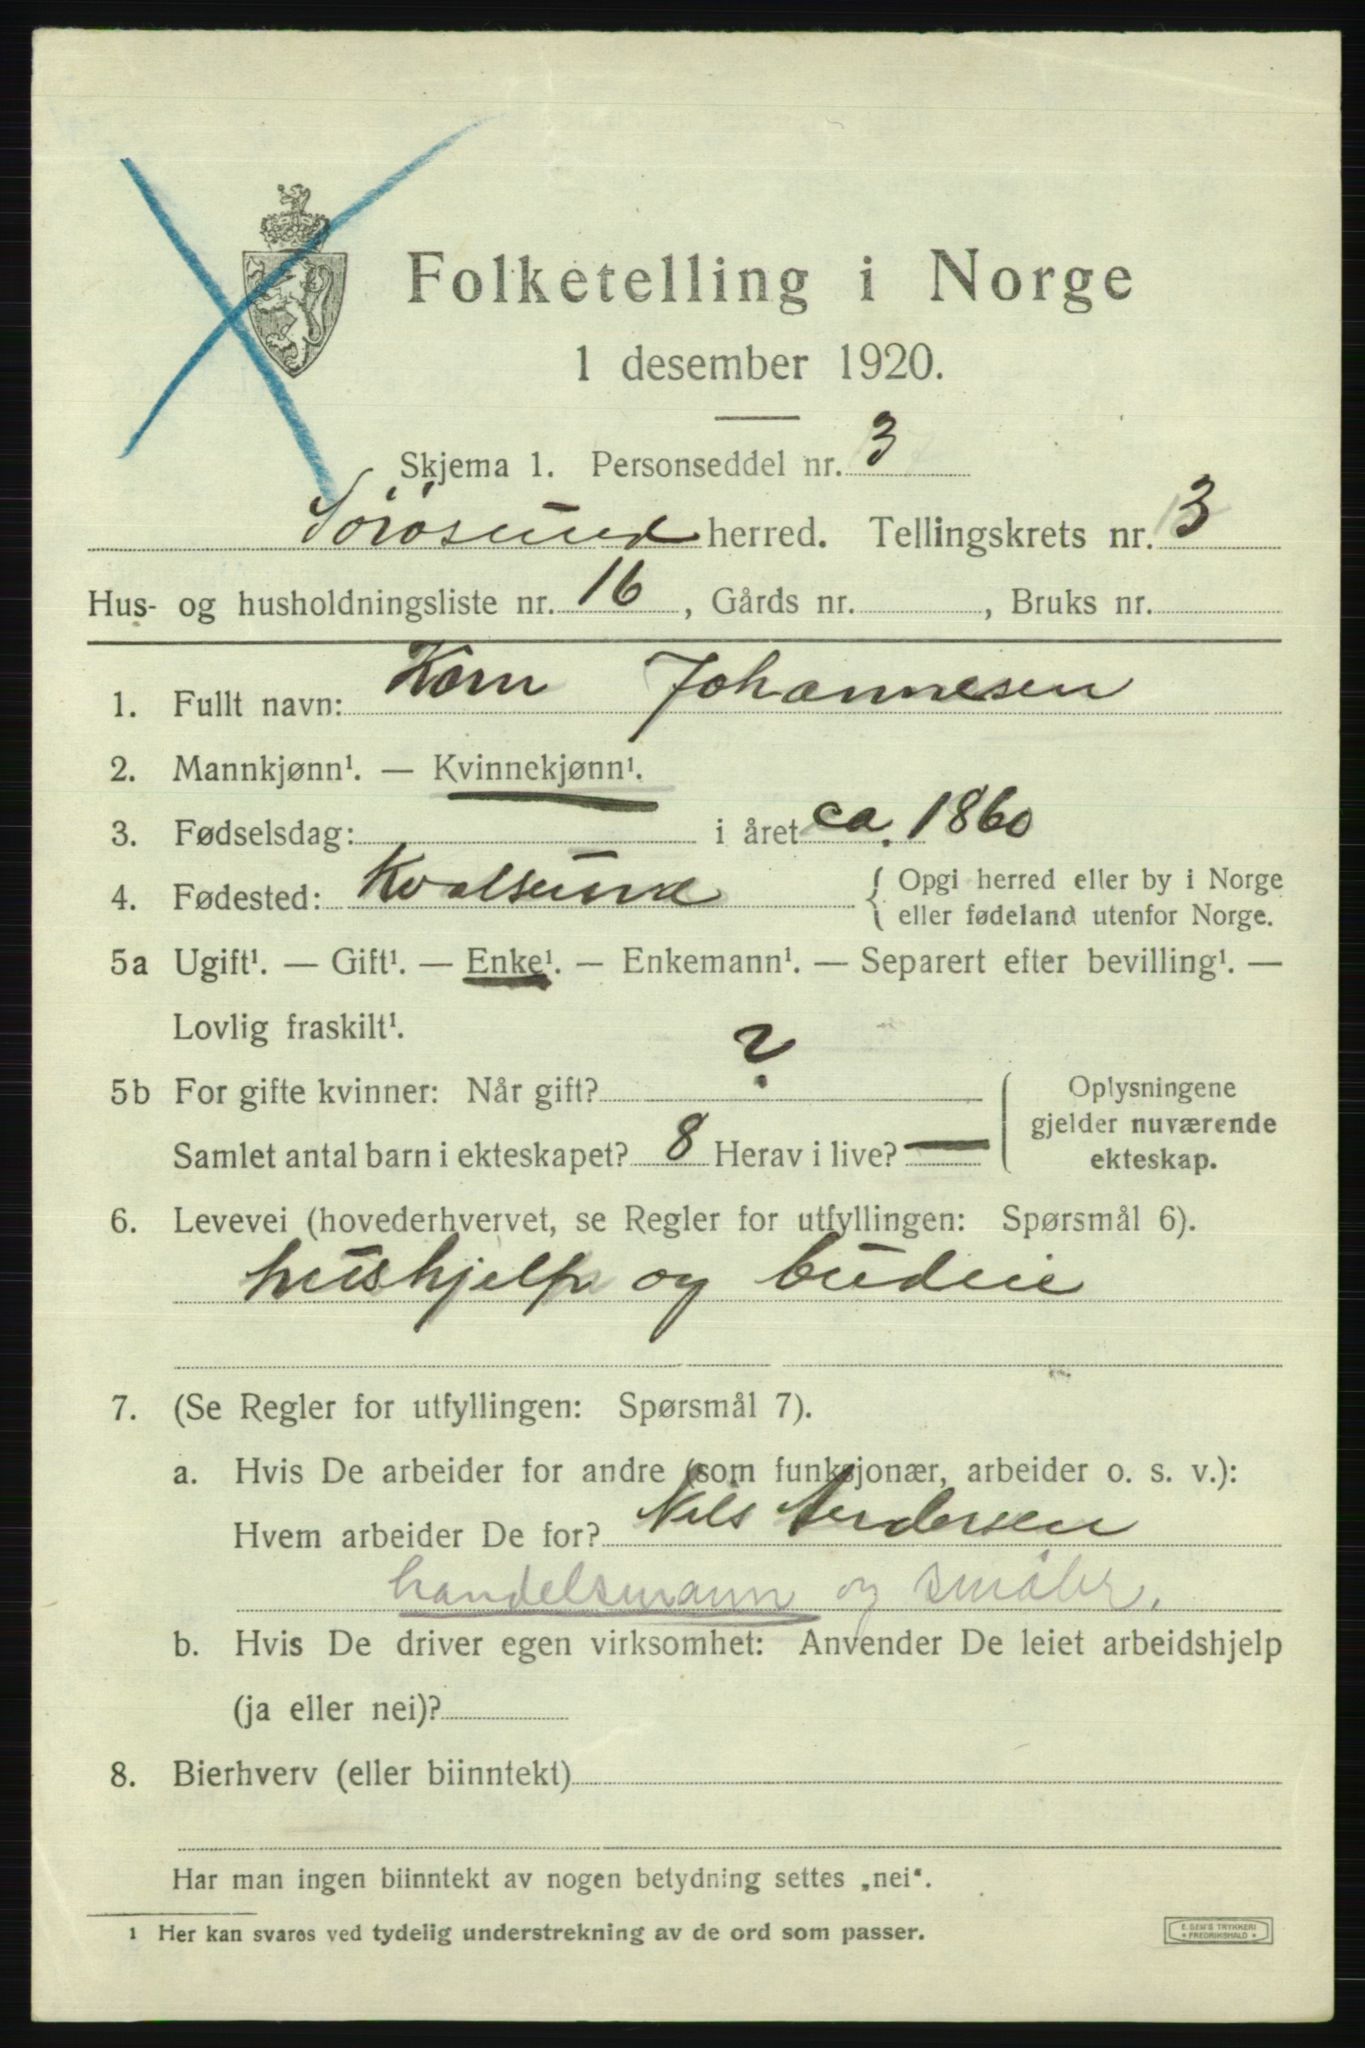 Folketelling i Norge
1 desember 1920.
Skjema 1. Personseddel nr. 3
Sörösund herred. Tellingskrets nr. 3
Hus- og husholdningsliste nr. 16, Gårds nr. , Bruks nr.
1. Fullt navn: Karn Johannesen
2. Mannkjønn¹. — Kvinnekjønn¹.
3. Fødselsdag: i året ca. 1860
4. Fødested: Kvalsund { Opgi herred eller by i Norge
eller fødeland utenfor Norge.
5a Ugift¹. — Gift¹. — Enke¹. — Enkemann¹. — Separert efter bevilling¹. —
Lovlig fraskilt¹.
5b For gifte kvinner: Når gift? ?
Samlet antal barn i ekteskapet? 8 Herav i live? —
Oplysningene
gjelder nuværende
ekteskap.
6. Levevei (hovederhvervet, se Regler for utfyllingen: Spørsmål 6).
hushjelp og budeie
7. (Se Regler for utfyllingen: Spørsmål 7).
a. Hvis De arbeider for andre (som funksjonær, arbeider o. s. v.):
Hvem arbeider De for? Nils Andersen
handelsmann og småbr.
b. Hvis De driver egen virksomhet: Anvender De leiet arbeidshjelp
(ja eller nei)?
8. Bierhverv (eller biinntekt)
Har man ingen biinntekt av nogen betydning settes „nei“.
1 Her kan svares ved tydelig understrekning av de ord som passer.
E. SEM'S TRYKKERI
* FREDRIKSHALD *